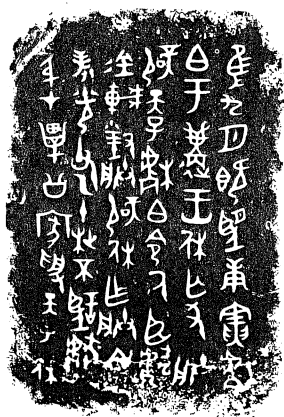 隹九月既望庚寅楷
白于遘王休亡尤朕
辟天子楷白令氒臣獻
金車對朕辟休乍朕文
考光父乙十枻不諲獻
身才畢公家受天子休